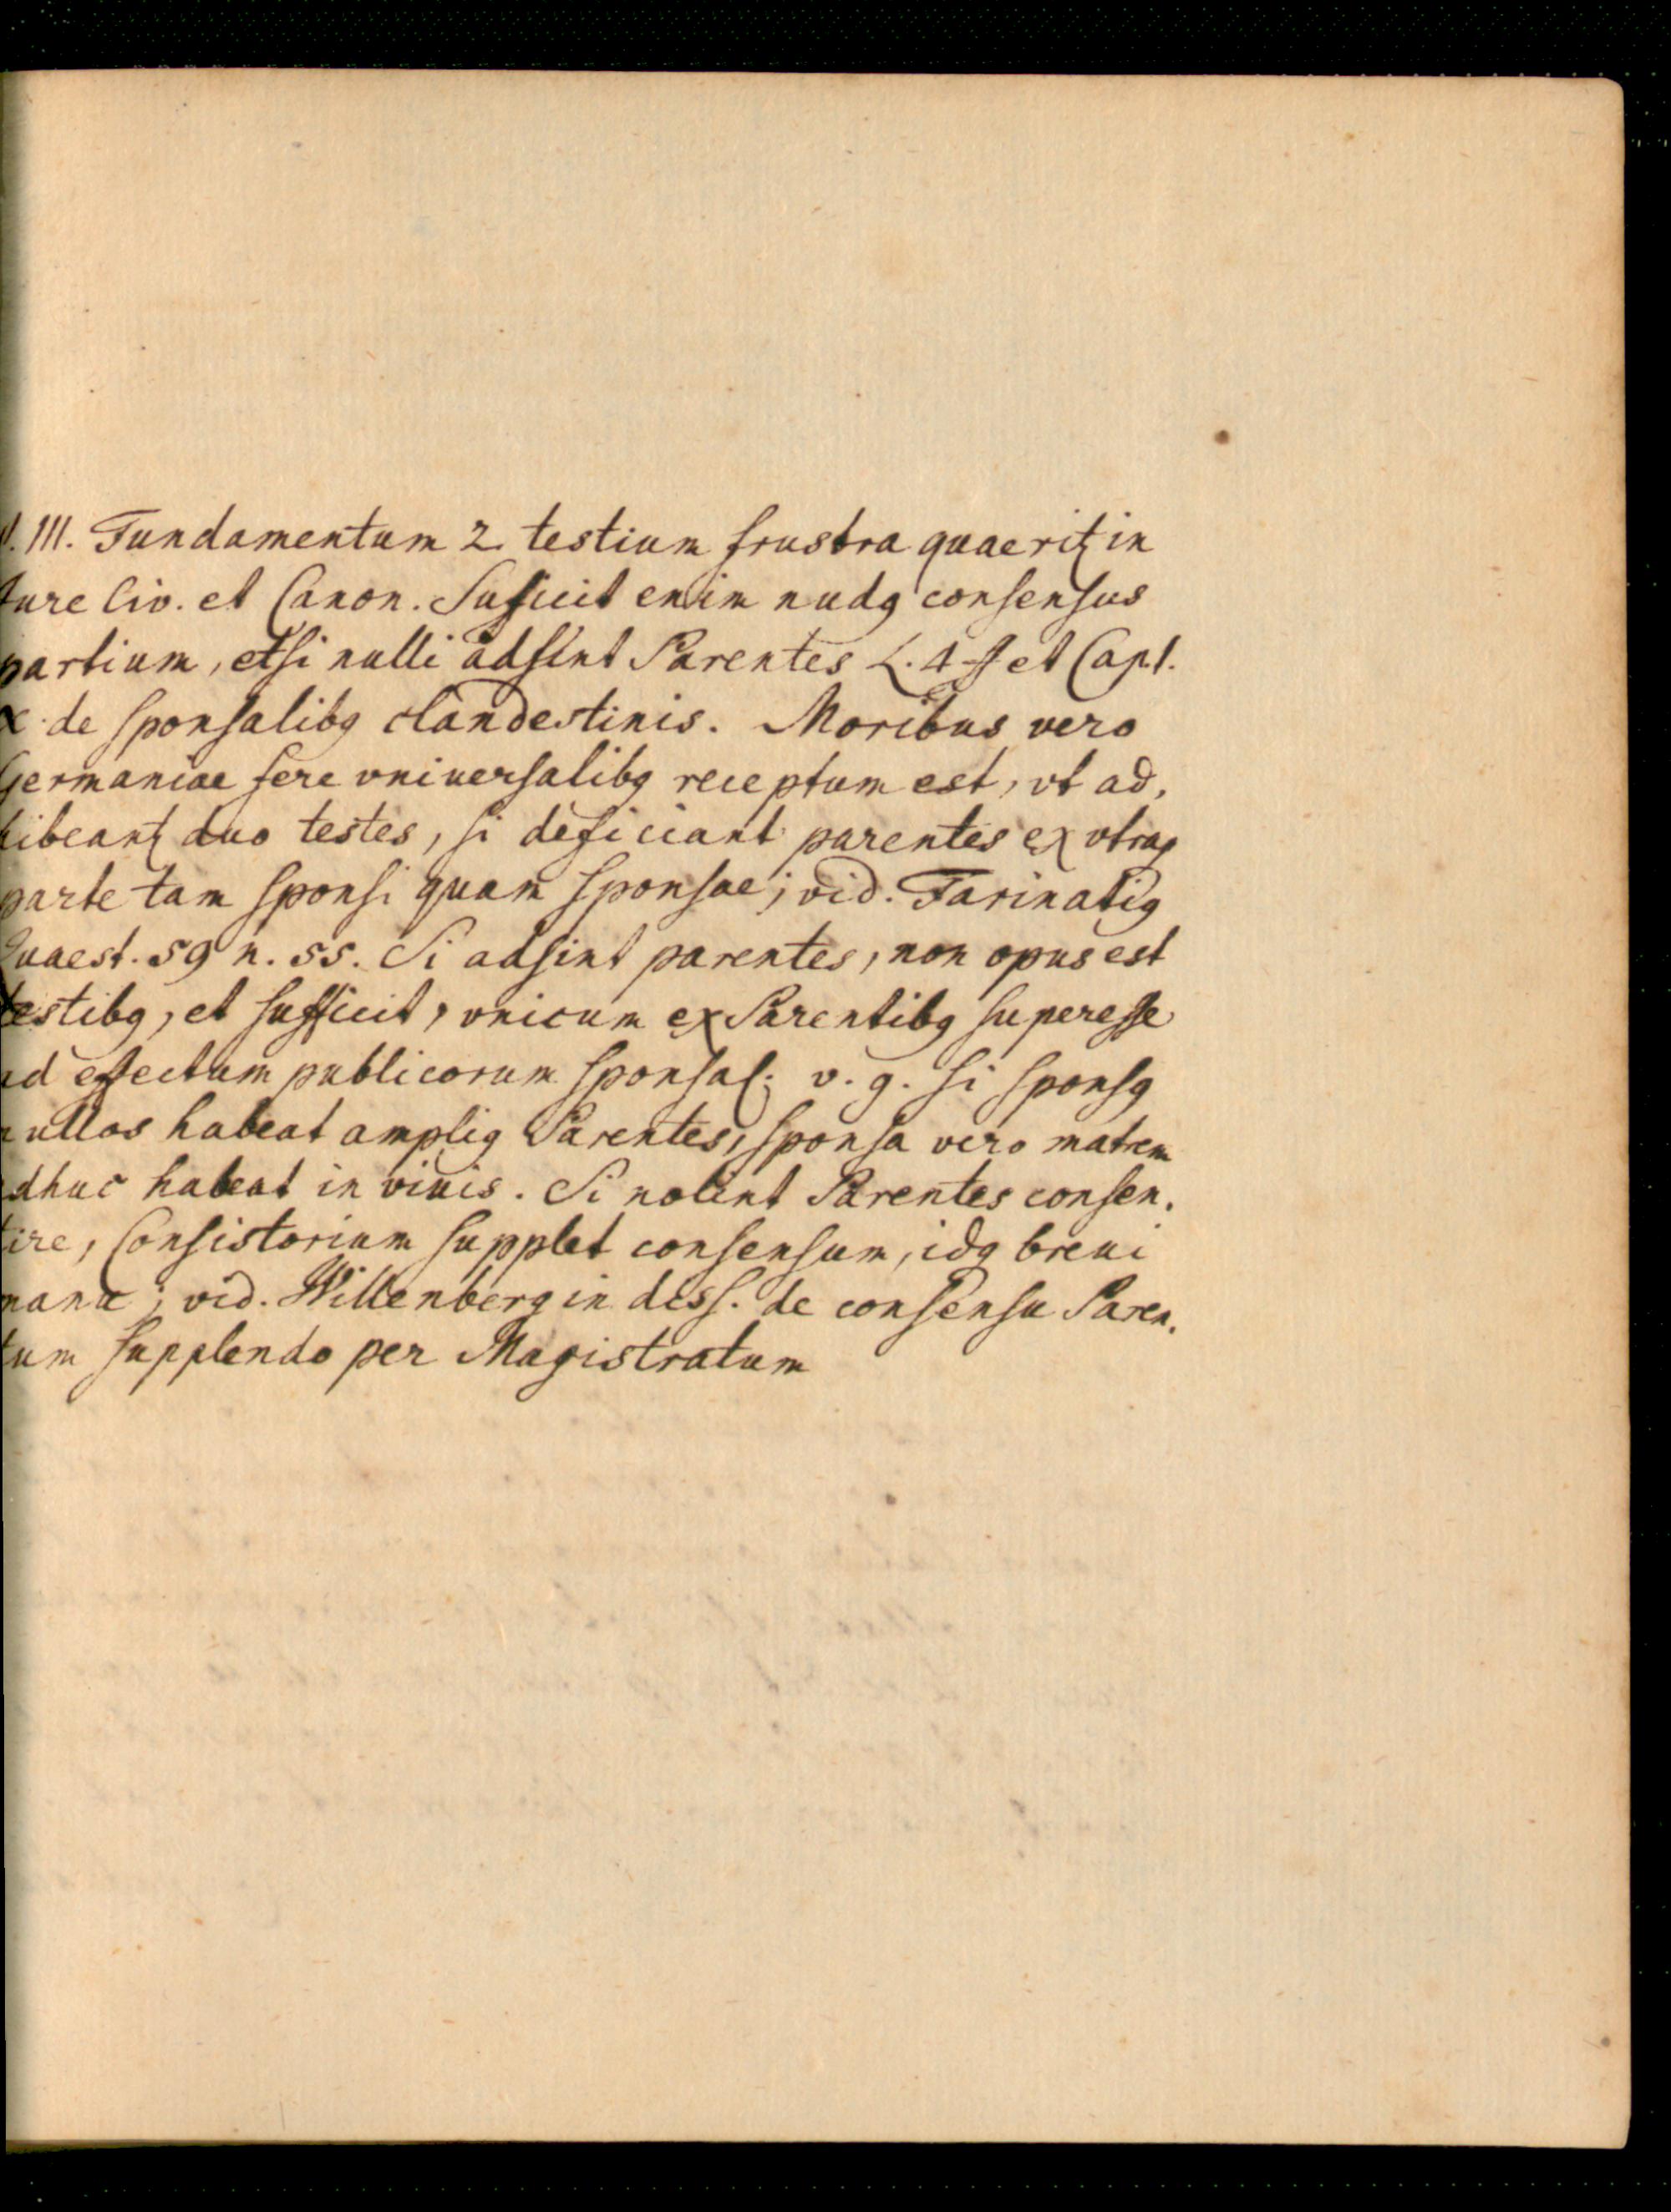 . III. Fundamentum 2. testium frustra quaeritꝛ in
Jure Civ. et Canon. Suficit enim nudꝯ consensus
partium, etsi nulli adsint Parentes L. 4 ff et Cap. 1.
X. de sponsalibꝯ clandestinis. Moribus vero
Germaniae fere vniuersalibꝯ receptum est, vt ad,
hibeantꝛ duo testes, si deficiant parentes ex vtraqꝫ
parte tam sponsi quam sponsae; vid. Farinatiꝯ
Quaest. 59 n. 55. Si adsint parentes, non opus est
testibꝯ, et sufficit, vnicum ex Parentibꝯ superesse
ad effectum publicorum sponsal; v. g. si sponsꝯ
nullos habeat ampliꝯ Parentes, sponsa vero matrem
adhuc habeat in viuis. Si nolint Parentes consen,
tire, Consistorium supplet consensum, idqꝫ breui
manu; vid. Willenberg in diss. de consensu Paren,
tum supplendo per Magistratum